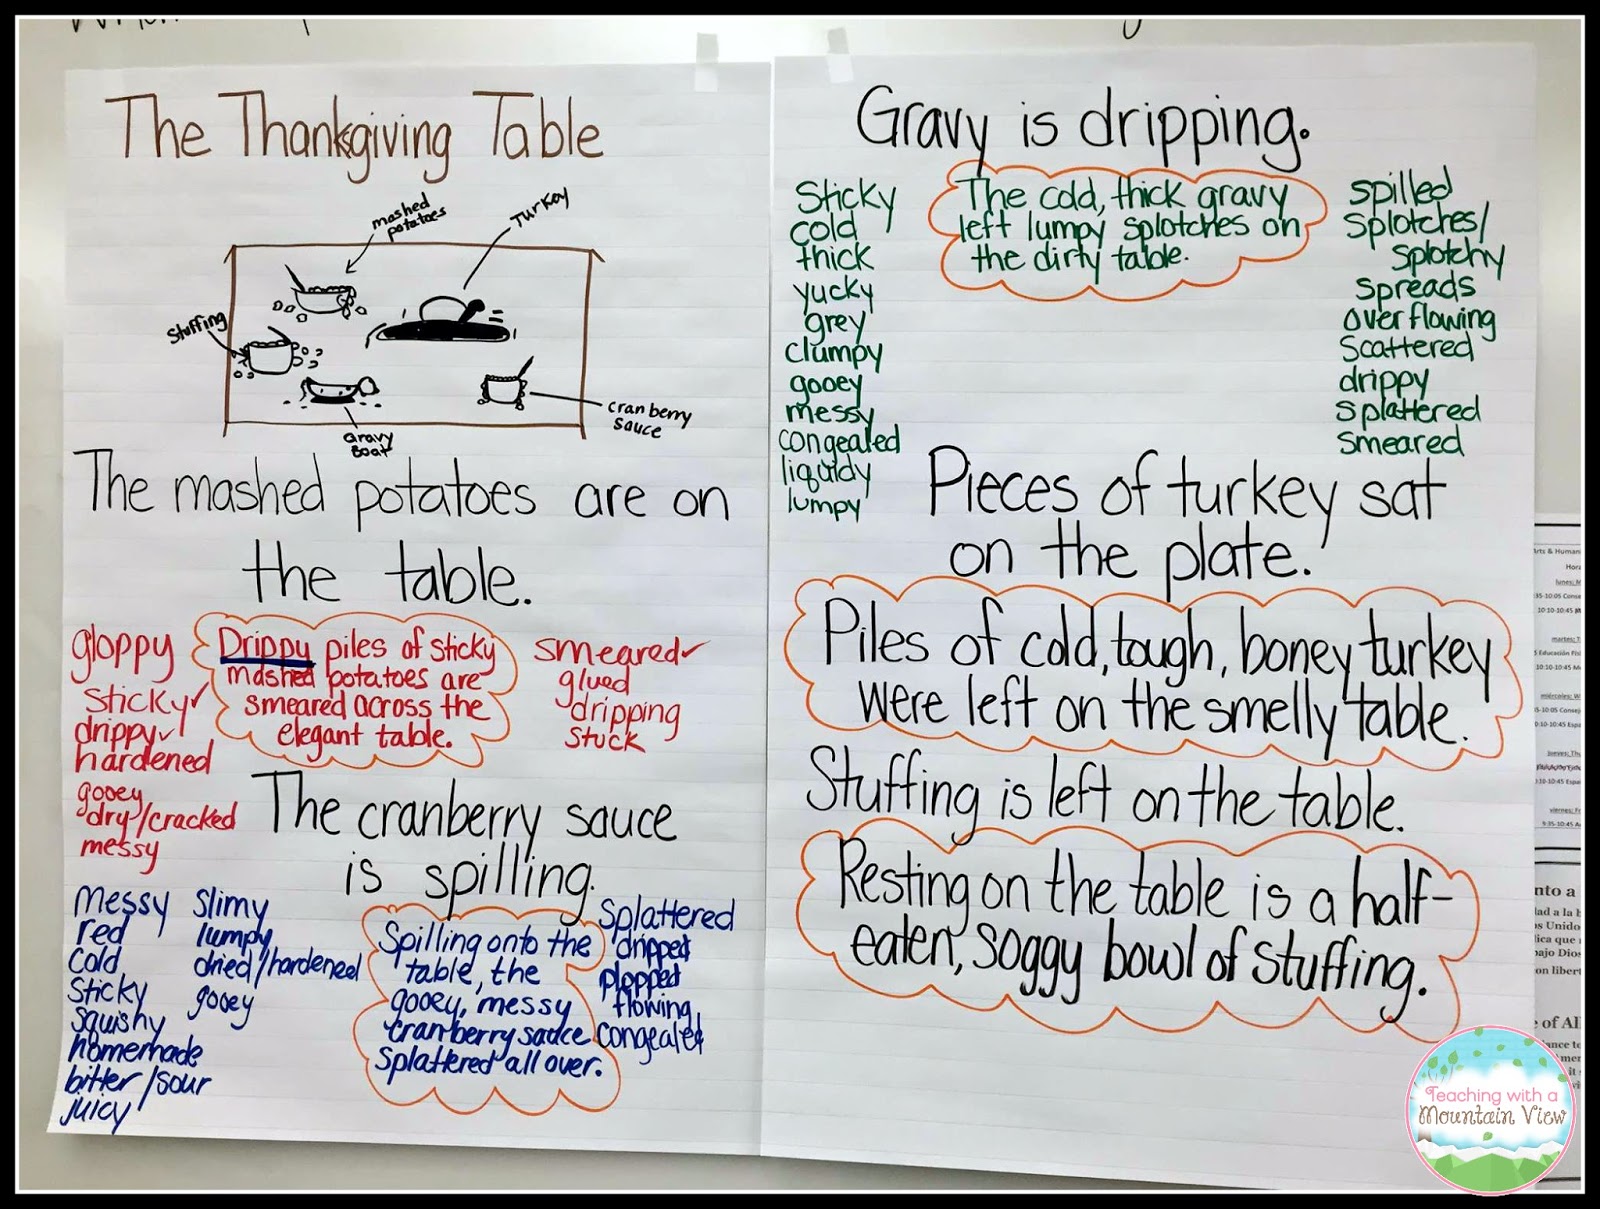 The Thanksgiving Table
mashed
potatoes
Turkey
stuffing
cranberry
sauce
Gravy
Boat
The mashed potatoes are on
the table.
gloppy
sticky
drippy
hardened
gooey
dry/cracked
messy
Drippy piles of sticky
mashed potatoes are
smeared across the
elegant table.
smeared
glued
dripping
stuck
The cranberry sauce
is spilling.
messy
red
cold
sticky
squishy
homemade
bitter/sour
juicy
slimy
lumpy
dried/hardened
gooey
Spilling onto the
table, the
gooey, messy
cranberry sauce
splattered all over.
Splattered
dripped
plopped
flowing
congealed
Gravy is dripping.
Sticky
cold
thick
yucky
grey
clumpy
gooey
messy
congealed
liquidy
lumpy
The cold, thick gravy
left lumpy splotches on
the dirty table.
spilled
splotches/
splotchy
spreads
overflowing
scattered
drippy
splattered
smeared
Pieces of turkey sat
on the plate.
Piles of cold, tough, boney turkey
were left on the smelly table.
Stuffing is left on the table.
Resting on the table is a half-
eaten, soggy bowl of stuffing.
Arts & Human
10:10-10:45
nto a
Unido
lica que
bajo Dios
on libert
e of All
Teaching with a
Mountain View